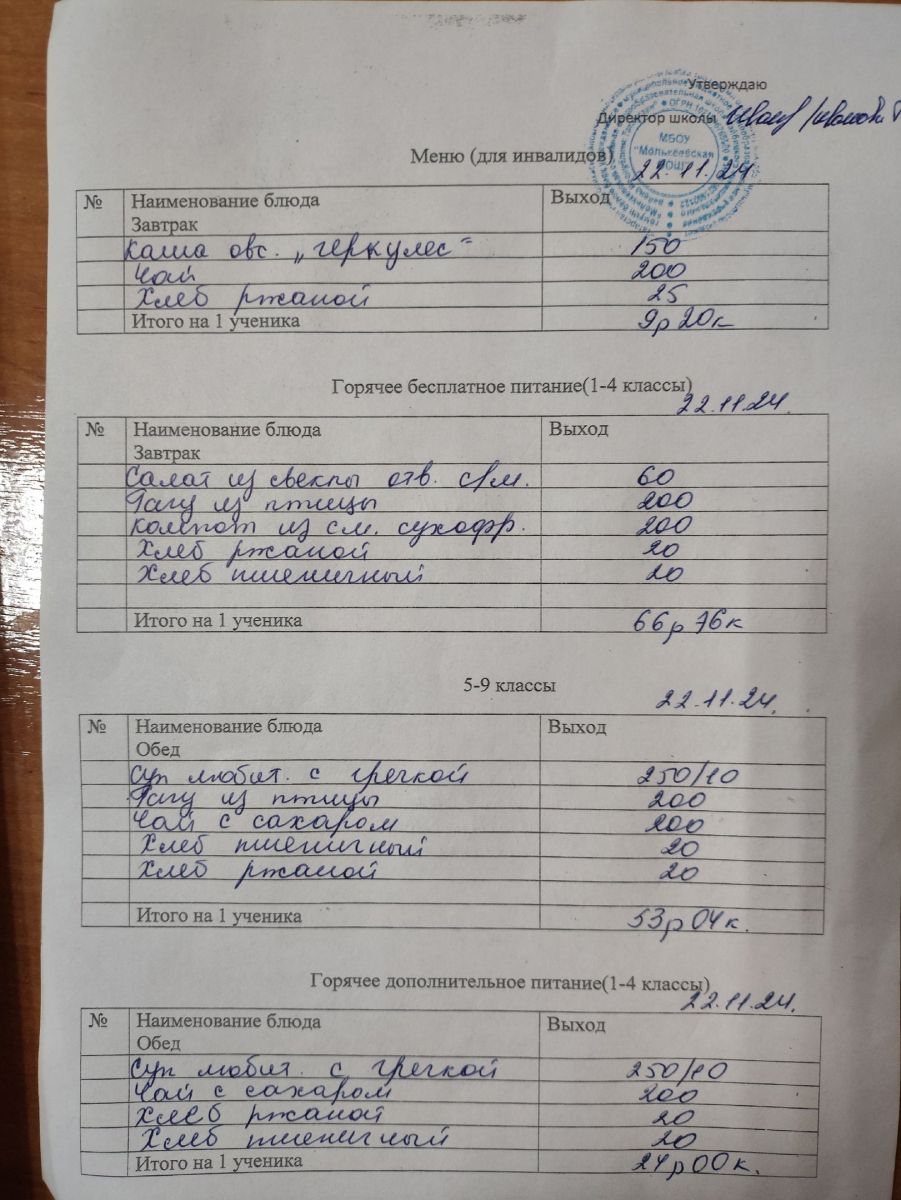 Утверждаю
Директор школы
МБОУ
"Молькеевская
ООШ"
Меню (для инвалидов)
22.11.24
№ Наименование блюда Выход
Завтрак
Каша овс. „геркулес" 150
Чай 200
Хлеб ржаной 25
Итого на 1 ученика 9р 20к
Горячее бесплатное питание(1-4 классы)
22.11.24.
№ Наименование блюда Выход
Завтрак
Салат из свеклы отв. с/м. 60
Рагу из птицы 200
Компот из см. сухофр. 200
Хлеб ржаной 20
Хлеб пшеничный 20
Итого на 1 ученика 66р 76к
5-9 классы
22.11.24.
№ Наименование блюда Выход
Обед
Суп любит. с гречкой 250/10
Рагу из птицы 200
Чай с сахаром 200
Хлеб пшеничный 20
Хлеб ржаной 20
Итого на 1 ученика 53р 04к.
Горячее дополнительное питание(1-4 классы)
22.11.24.
№ Наименование блюда Выход
Обед
Суп любит. с гречкой 250/10
Чай с сахаром 200
Хлеб ржаной 20
Хлеб пшеничный 20
Итого на 1 ученика 24р 00к.